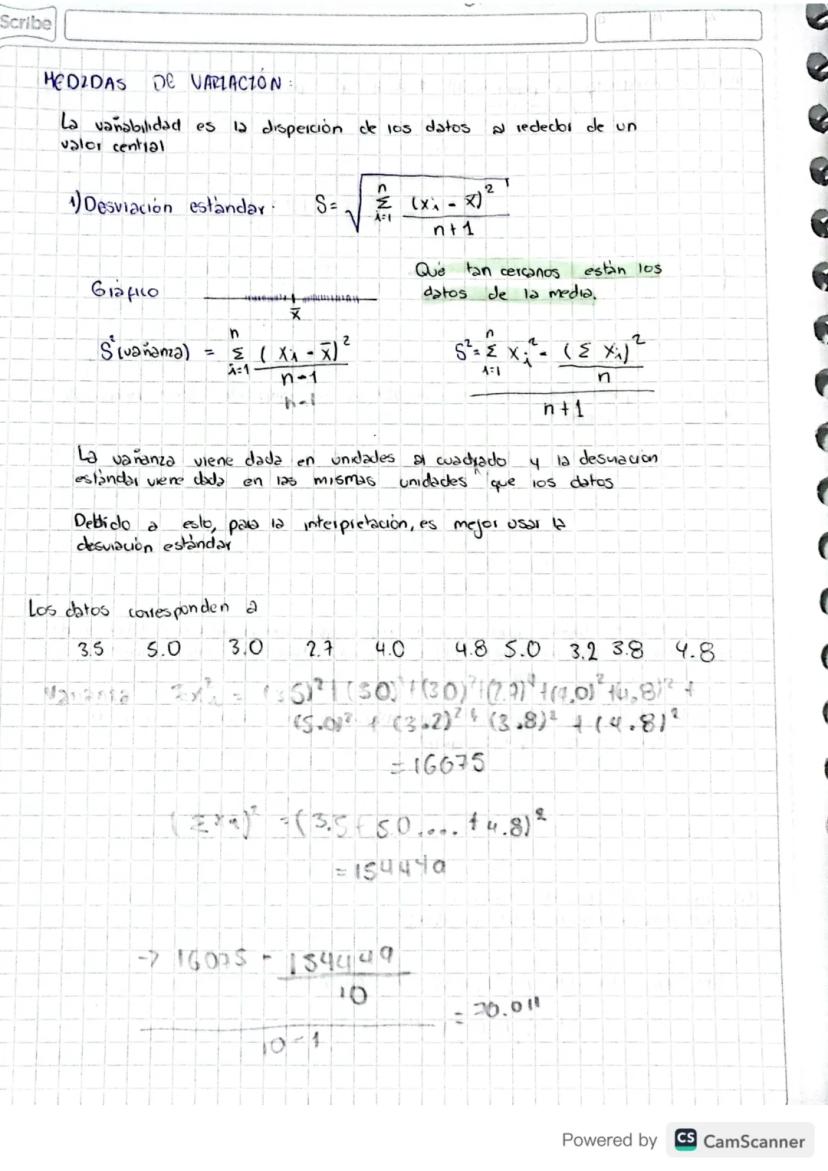 Scribe
MEDIDAS DE VARIACIÓN:
La variabilidad es la disperción de los datos al rededor de un
valor central
1) Desviación estàndar. S = √ Σ (xi - x̄)² / n+1
n
i=1
Qué tan cercanos están los
datos de la media.
Gráfico
x̄
S² (varianza) = Σ (xi - x̄)² / n-1
n
i=1
n-1
S² = Σ xi² - (Σ xi)² / n
n
i=1
n+1
La varianza viene dada en unidades al cuadrado y la desviación
estándar viene dada en las mismas unidades que los datos
Debido a esto, para la interpretación, es mejor usar la
desviación estándar
Los datos corresponden a
3.5 5.0 3.0 2.7 4.0 4.8 5.0 3.2 3.8 4.8
(5.0)² + (3.2)² + (3.8)² + (4.8)²
= 16675
(Σxi)² = (3.5 + 50 .... + 4.8)²
-> - 154449
10
10-1